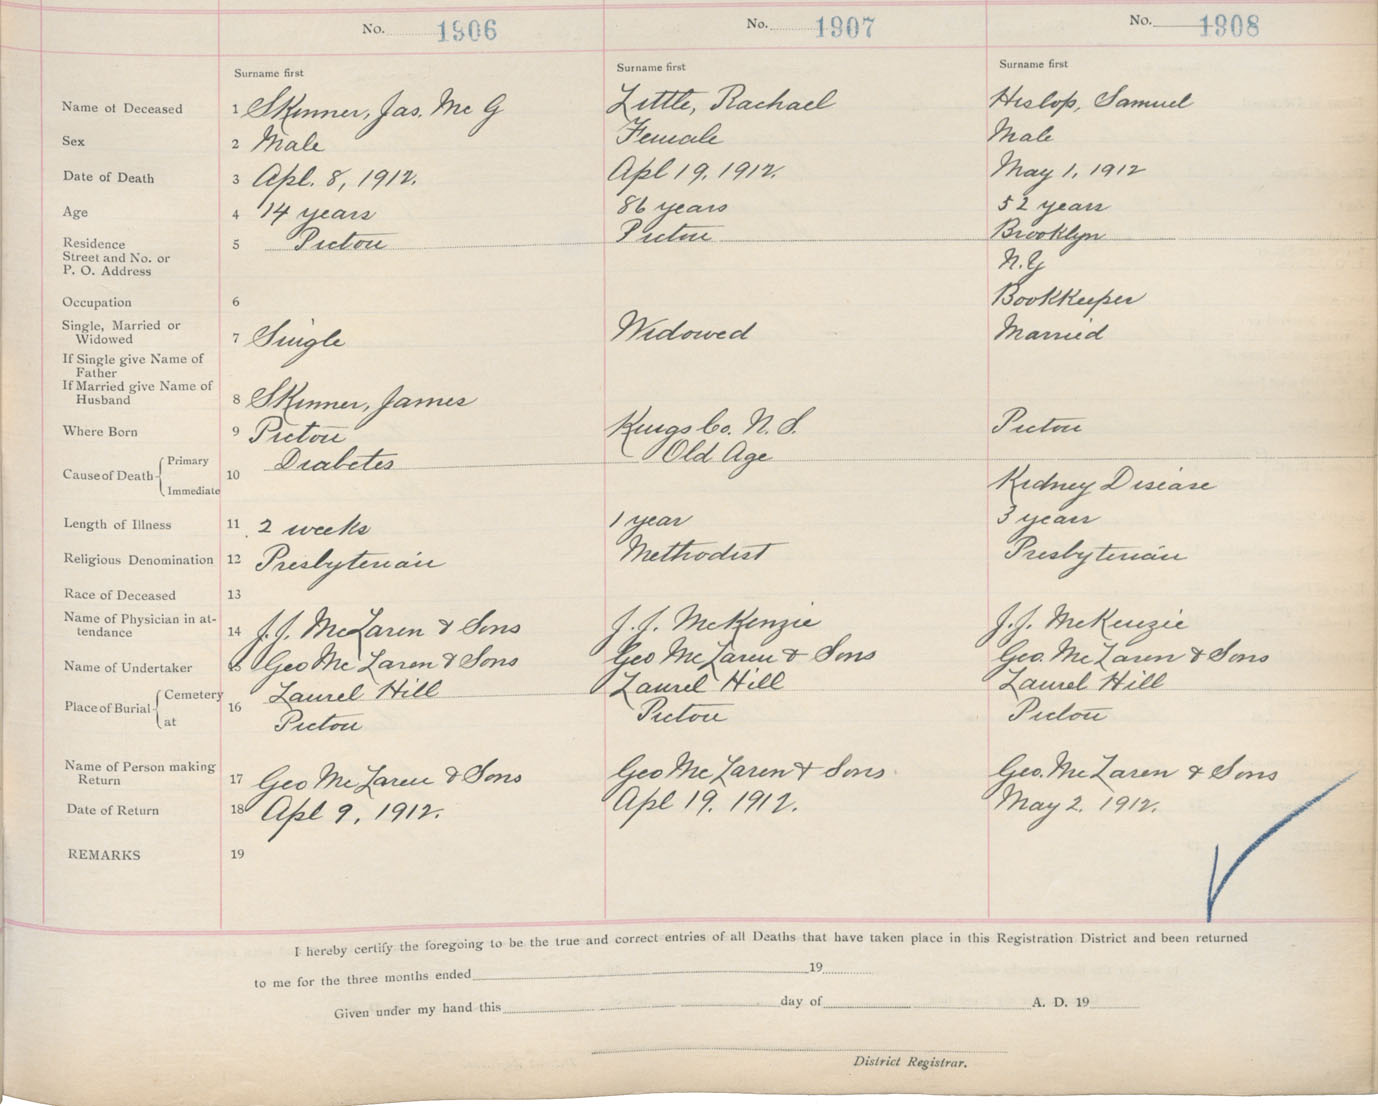 No. 1906 No. 1907 No. 1908
Surname first Surname first Surname first
Name of Deceased 1 Skinner, Jas. Mc G Little, Rachael Hislop, Samuel
Sex 2 Male Female Male
Date of Death 3 Apl. 8, 1912. Apl 19, 1912. May 1, 1912
Age 4 14 years 86 years 52 years
Residence 5 Pictou Pictou Brooklyn
Street and No. or
P. O. Address N.Y
Occupation 6 Bookkeeper
Single, Married or
Widowed 7 Single Widowed Married
If Single give Name of
Father
If Married give Name of
Husband 8 Skinner, James
Where Born 9 Pictou Kings Co. N. S. Pictou
Cause of Death Primary 10 Diabetes Old Age
Immediate Kidney Disease
Length of Illness 11 2 weeks 1 year 3 years
Religious Denomination 12 Presbyterian Methodist Presbyterian
Race of Deceased 13
Name of Physician in at-
tendance 14 J.J. McLaren & Sons J.J. McKenzie J.J. McKenzie
Name of Undertaker 15 Geo McLaren & Sons Geo McLaren & Sons Geo. McLaren & Sons
Place of Burial Cemetery 16 Laurel Hill Laurel Hill Laurel Hill
at Pictou Pictou Pictou
Name of Person making
Return 17 Geo McLaren & Sons Geo McLaren & Sons Geo. McLaren & Sons
Date of Return 18 Apl 9, 1912. Apl 19. 1912. May 2. 1912.
REMARKS 19
I hereby certify the foregoing to be the true and correct entries of all Deaths that have taken place in this Registration District and been returned
to me for the three months ended 19
Given under my hand this day of A. D. 19
District Registrar.